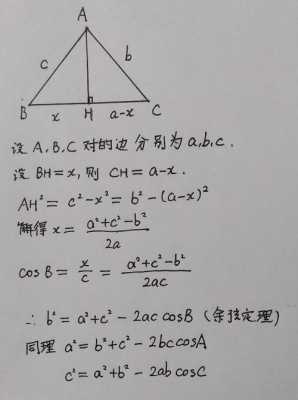 A
c
b
B
x
H
a-x
C
设 A,B,C 对的边分别为 a,b,c.
设 BH=x, 则 CH=a-x.
AH²= c²-x²= b²-(a-x)²
解得 x= (a²+c²-b²)/2a
cosB= x/c = (a²+c²-b²)/2ac
∴ b²=a²+c²-2ac cosB (余弦定理)
同理 a²=b²+c²-2bccosA
c²=a²+b²-2ab cosC